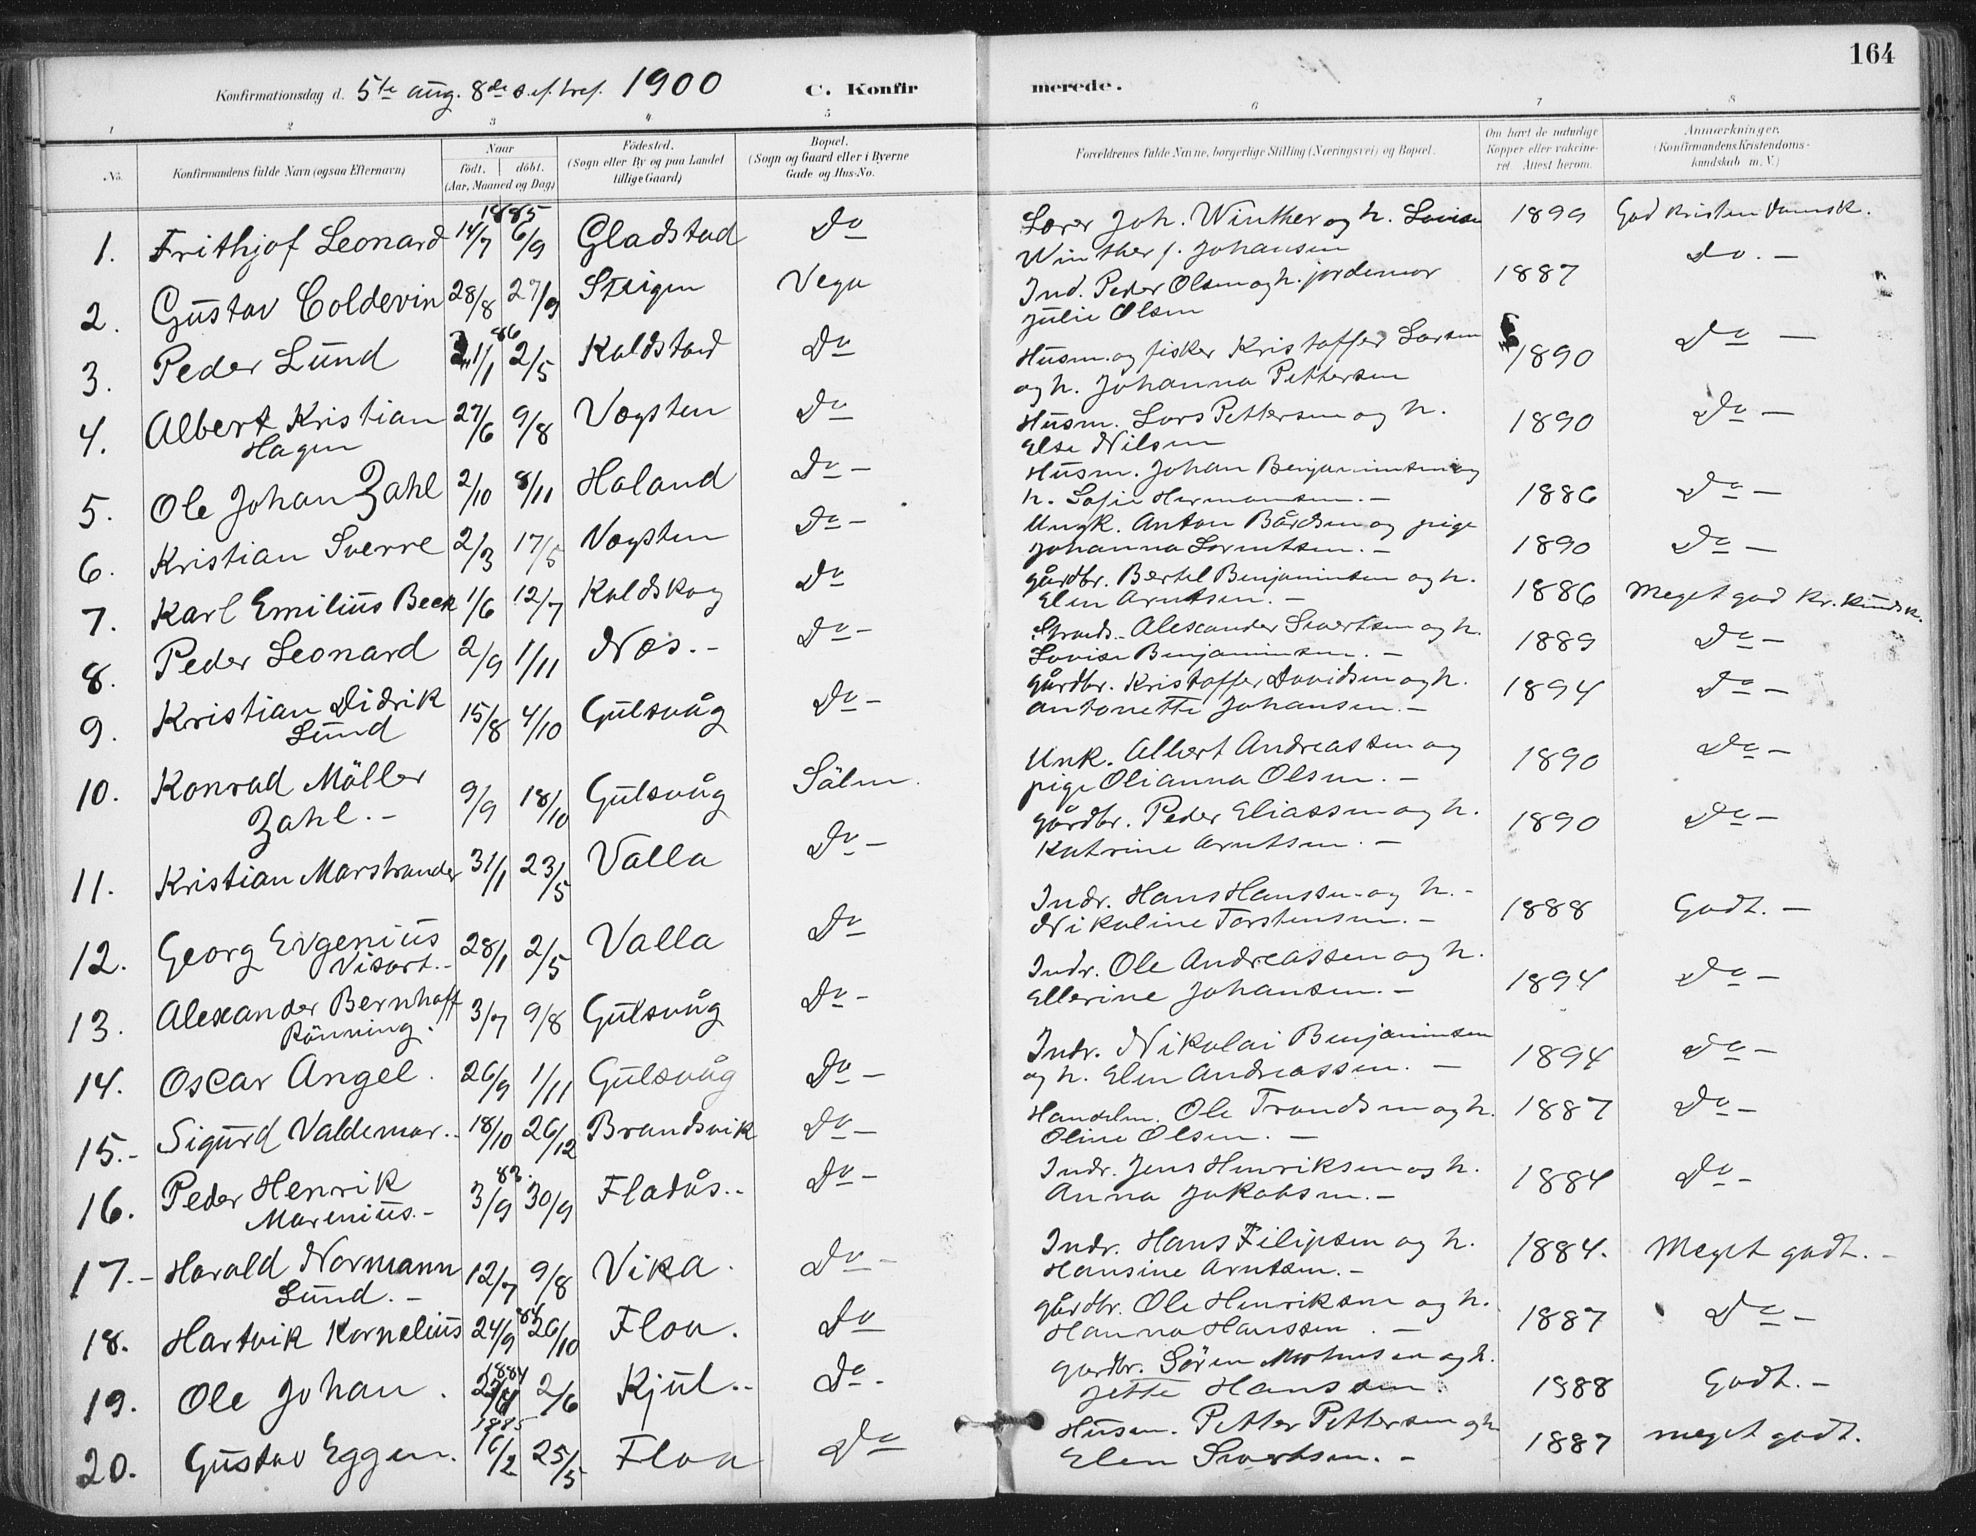 164
Konfirmationsdag d. 5te aug. 8de s. ef. tref. 1900 C. Konfirmerede.
1 2 3 4 5 6 7 8
No. Konfirmandens fulde Navn (ogsaa Efternavn) Naar født. døbt. (Aar, Maaned og Dag) Fødested. (Sogn eller By og paa Landet tillige Gaard) Bopæl. (Sogn og Gaard eller i Byerne Gade og Hus-No. Forældrenes fulde Navne, borgerlige Stilling (Næringsvei) og Bopæl. Om havt de naturlige Kopper eller vakcineret. Attest herom. Anmærkninger. (Konfirmandens Kristendomskundskab m. V.)
1885
1. Frithjof Leonard 14/7 6/9 Gladstad Do Lærer Joh. Winther og h. Lovise 1899 God kristendomsk.
Winther f. Johansen
2. Gustav Coldevin 28/8 27/9 Steigen Vega Ind. Peder Olsen og h. jordemor 1887 Do. –
Julie Olsen
86
3. Peder Lund 21/1 2/5 Kaldstad Do Husm. og fisker Kristoffer Larsen 1890 Do –
og h. Johanna Pettersen
4. Albert Kristian 27/6 9/8 Vægsten Do Husm. Lars Pettersen og h. 1890 Do –
Hagen Else Nilsen
5. Ole Johan Zahl 2/10 8/11 Haland Do – Husm. Johan Benjaminsen og 1886 Do –
h. Sofie Hermansen. –
6. Kristian Sverre 2/3 17/5 Vægsten Do – Ungk. Anton Bårdsen og pige 1890 Do –
Johanna Lorentsen. –
7. Karl Emilius Beck 1/6 12/7 Kaldskag Do gårdbr. Bertel Benjaminsen og h. 1886 Meget god kr. kundsk.
Elen Arntsen. –
8. Peder Leonard 2/9 1/11 Næs. – Do – Strands. Alexander Sivertsen og h. 1889 Do –
Lovise Benjaminsen. –
9. Kristian Didrik 15/8 4/10 Gulsvåg Do – gårdbr. Kristoffer Davidsen og h. 1894 Do –
Lund Antonette Johansen. –
10. Konrad Möller 9/9 18/10 Gulsvåg Sålm. Unk. Albert Andreassen og 1890 Do –
Zahl. – pige Olianna Olsen. –
11. Kristian Marstrander 31/1 23/5 Valla Do – gårdbr. Peder Eliassen og h. 1890 Do –
Katrine Arntsen. –
12. Georg Evgenius 28/1 2/5 Valla Do Indr. Hans Hanssen og h. – 1888 Godt. –
Visart. – Nikoline Torstensen. –
13. Alexander Bernhoft 3/7 9/8 Gulsvåg Do – Indr. Ole Andreassen og h. 1894 Do –
Rönning. Ellerine Johansen. –
14. Oscar Angel. 26/9 1/11 Gulsvåg Do – Indr. Nikolai Benjaminsen 1894 Do –
og h. Elen Andreassen. –
15. – Sigurd Valdemar. – 18/10 26/12 Brandsvik Do – Handelm. Ole Trondsen og h. 1887 Do –
Oline Olsen. –
83.
16. Peder Henrik 3/9 30/9 Fladås. – Do – Indr. Jens Henriksen og h. 1884 Do –
Marenius. – Anna Jakobsen. –
17. – Harald Normann 12/7 9/8 Vika. Do – Indr. Hans Filipsen og h. 1884. Meget godt. –
Lund. – Hansine Arntsen. –
84
18. Hartvik Kornelius 24/9 26/10 Floa. Do gårdbr. Ole Henriksen og h. 1887 Do –
Hanna Hanssen. –
1884
19. Ole Johan. 2/6 Kjul. – Do. gårdbr. Søren og h. 1888 Godt. –
Jette Hanssen
1885
20. Gustav Eggen. 16/2 25/5 Floa Do Husm. Petter Pettersen og h. 1887 meget godt.
Elen Sivertsen. –